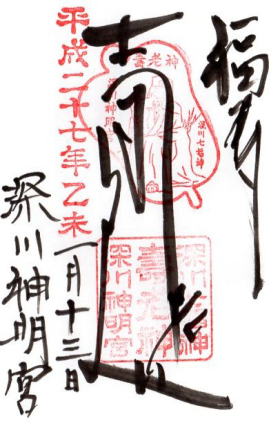 福寿
寿老神
壽老神
深川七福神
深川神明宮
深川七福神
壽老神
深川神明宮
平成二十七年乙未
一月十三日
深川神明宮